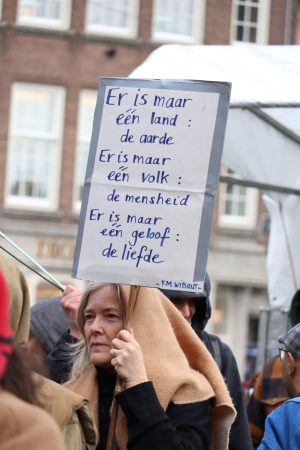 Er is maar
één land :
de aarde
Er is maar
één volk :
de mensheid
Er is maar
één geloof :
de liefde
- F.M. WIBAUT -